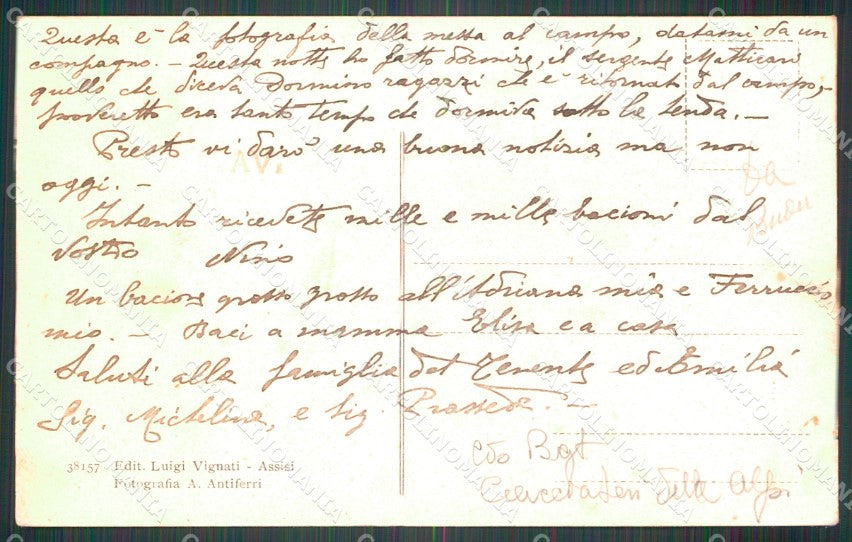 Questa è la fotografia della messa al campo, datami da un
compagno. - Questa notte ho fatto dormire, il sergente Matticari
quello che diceva Dormino ragazzi che è ritornato dal campo, -
poveretto era tanto tempo che dormiva sotto la tenda. -
Presto vi darò una buona notizia ma non
oggi. -
Intanto ricevete mille e mille bacioni dal
vostro Nino
Un bacione grosso grosso all'Adriana mia e Ferruccio
mio. - Baci a mamma Elisa e a casa
Saluti alla famiglia del Tenente ed Emilia
Sig. Michelina, e Sig. Prassede. -
38157 Edit. Luigi Vignati - Assisi
Fotografia A. Antiferri
Bgt
Cacciatori delle Alpi
CARTOLINOMANIA